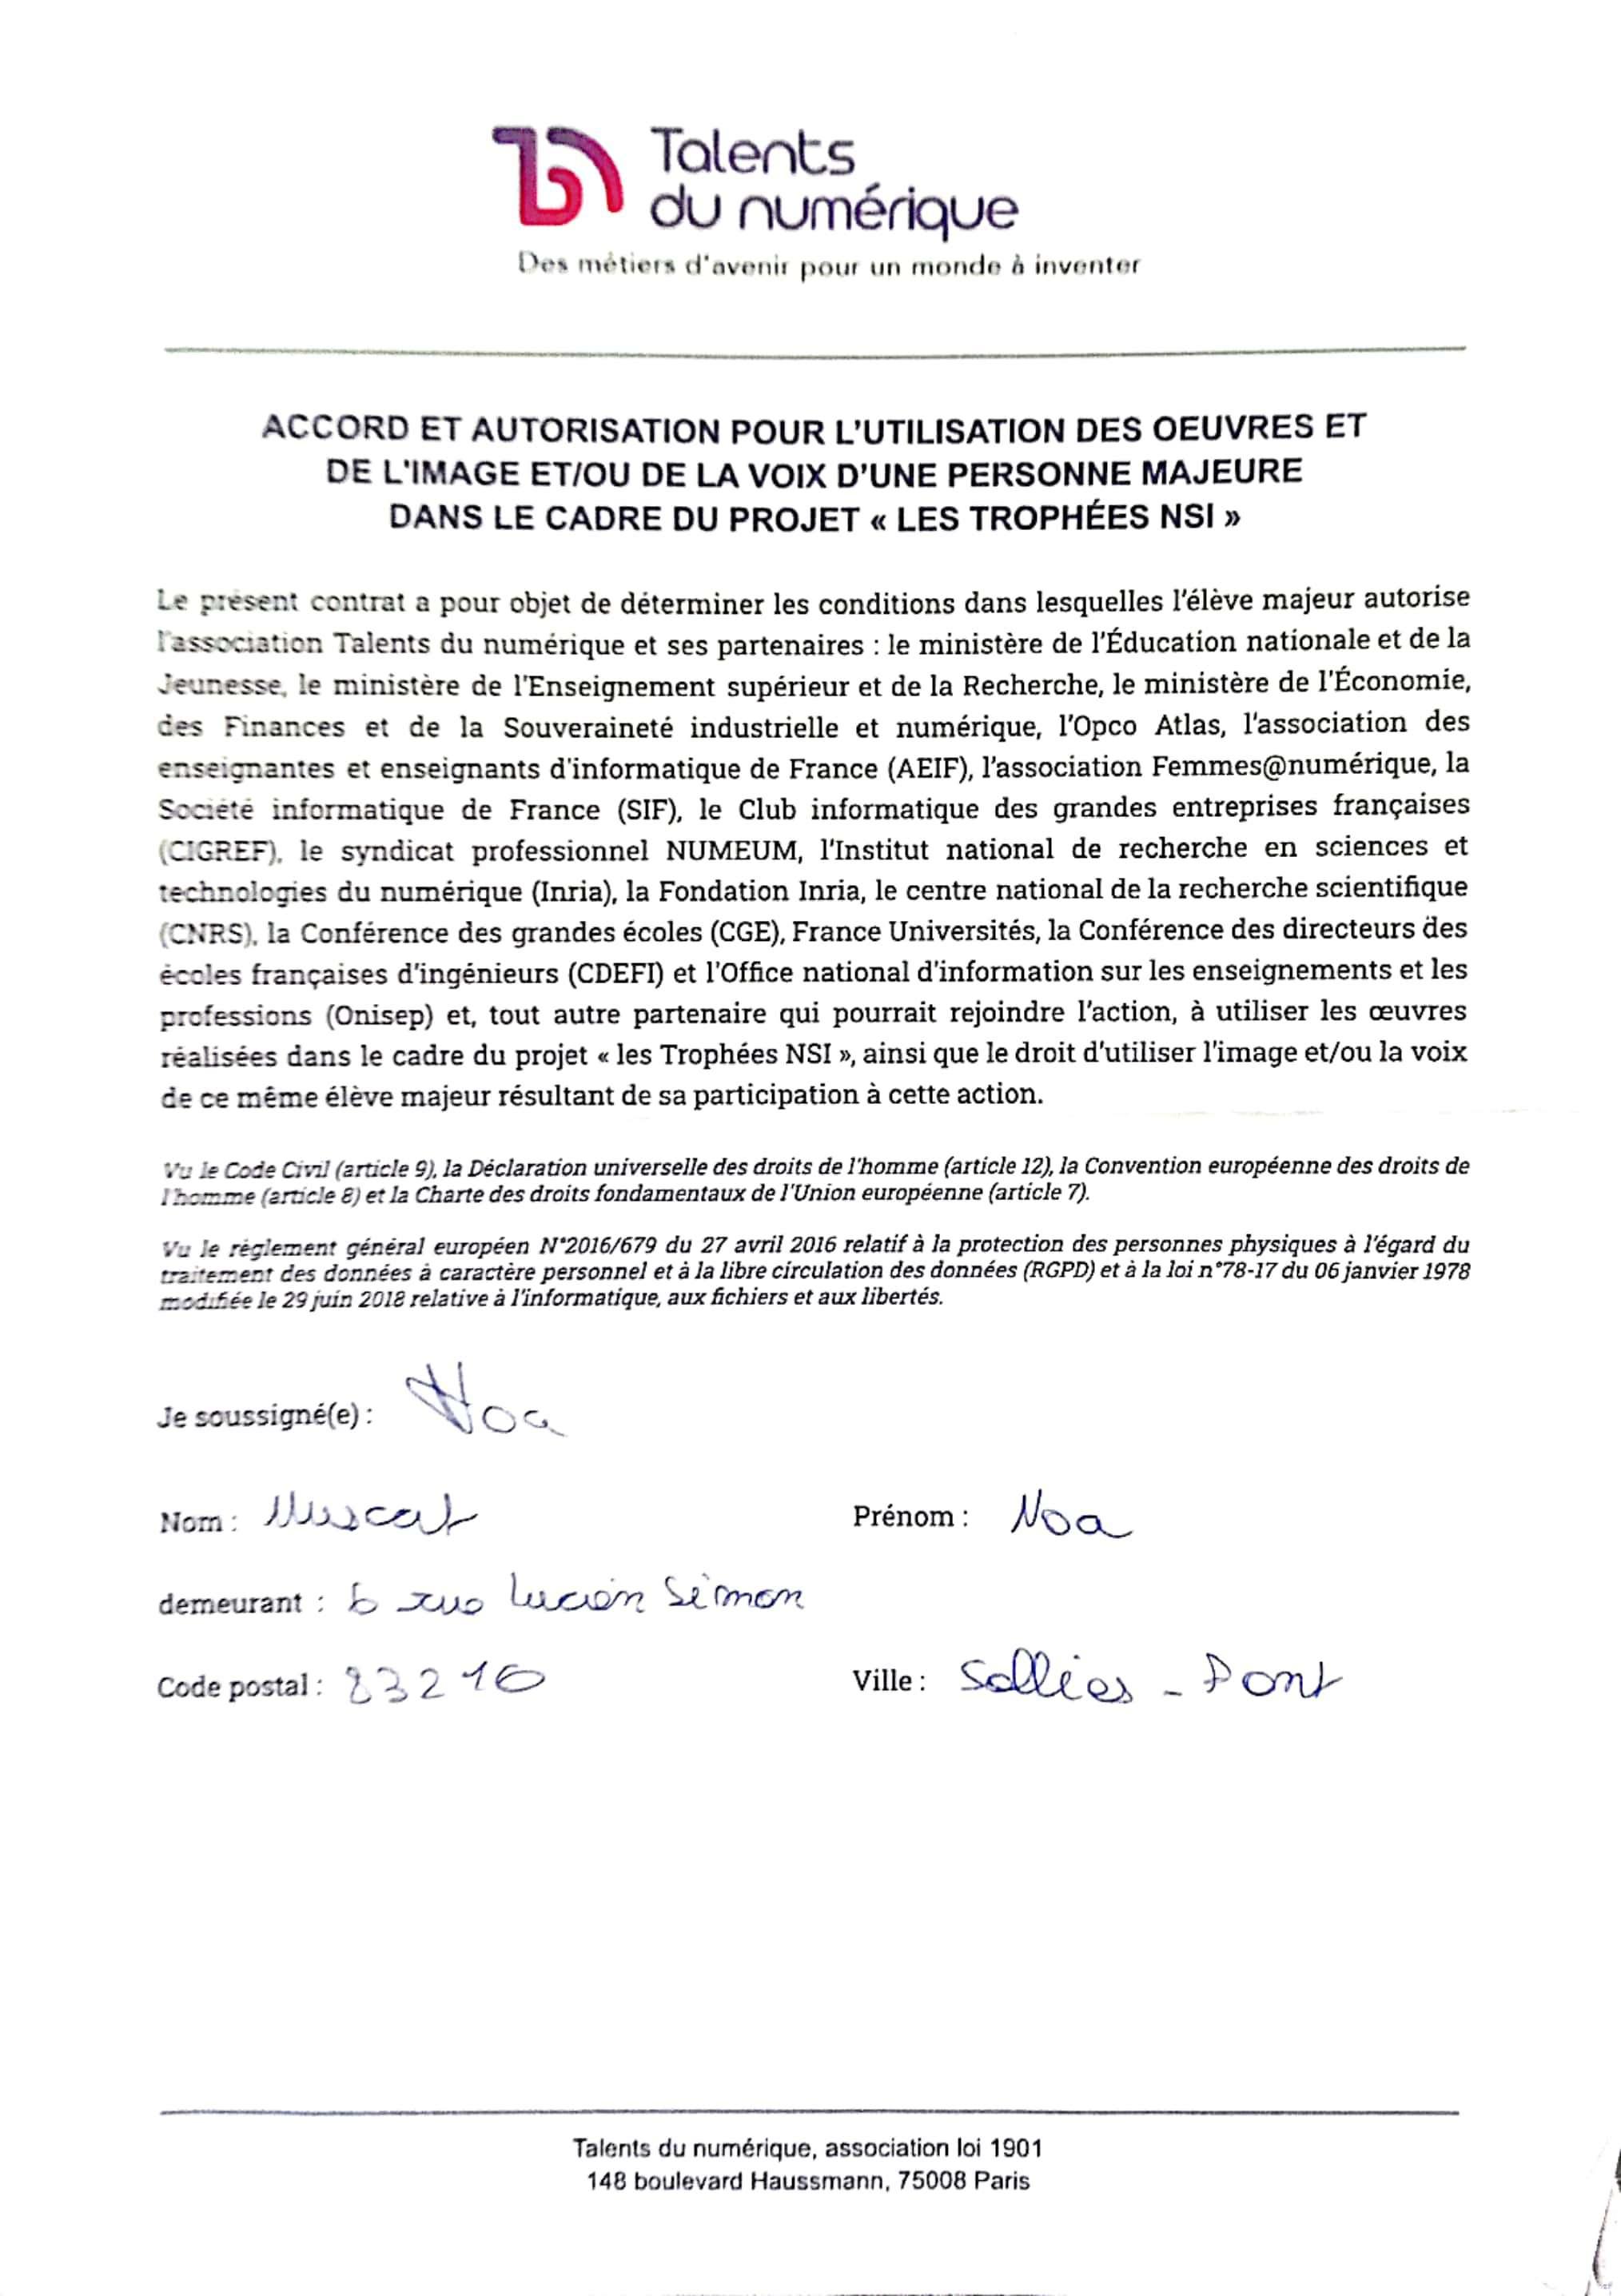 Talents
du numérique
Des métiers d'avenir pour un monde à inventer
ACCORD ET AUTORISATION POUR L'UTILISATION DES OEUVRES ET
DE L'IMAGE ET/OU DE LA VOIX D'UNE PERSONNE MAJEURE
DANS LE CADRE DU PROJET « LES TROPHÉES NSI »
Le présent contrat a pour objet de déterminer les conditions dans lesquelles l'élève majeur autorise
l'association Talents du numérique et ses partenaires : le ministère de l'Éducation nationale et de la
Jeunesse, le ministère de l'Enseignement supérieur et de la Recherche, le ministère de l'Économie,
des Finances et de la Souveraineté industrielle et numérique, l'Opco Atlas, l'association des
enseignantes et enseignants d'informatique de France (AEIF), l'association Femmes@numérique, la
Société informatique de France (SIF), le Club informatique des grandes entreprises françaises
(CIGREF), le syndicat professionnel NUMEUM, l'Institut national de recherche en sciences et
technologies du numérique (Inria), la Fondation Inria, le centre national de la recherche scientifique
(CNRS), la Conférence des grandes écoles (CGE), France Universités, la Conférence des directeurs des
écoles françaises d'ingénieurs (CDEFI) et l'Office national d'information sur les enseignements et les
professions (Onisep) et, tout autre partenaire qui pourrait rejoindre l'action, à utiliser les œuvres
réalisées dans le cadre du projet « les Trophées NSI », ainsi que le droit d'utiliser l'image et/ou la voix
de ce même élève majeur résultant de sa participation à cette action.
Vu le Code Civil (article 9), la Déclaration universelle des droits de l'homme (article 12), la Convention européenne des droits de
l'homme (article 8) et la Charte des droits fondamentaux de l'Union européenne (article 7).
Vu le règlement général européen N°2016/679 du 27 avril 2016 relatif à la protection des personnes physiques à l'égard du
traitement des données à caractère personnel et à la libre circulation des données (RGPD) et à la loi n°78-17 du 06 janvier 1978
modifiée le 29 juin 2018 relative à l'informatique, aux fichiers et aux libertés.
Je soussigné(e) : Noa
Nom : Muscat Prénom : Noa
demeurant : 6 rue Lucien Simon
Code postal : 83210 Ville : Solliès - Pont
Talents du numérique, association loi 1901
148 boulevard Haussmann, 75008 Paris